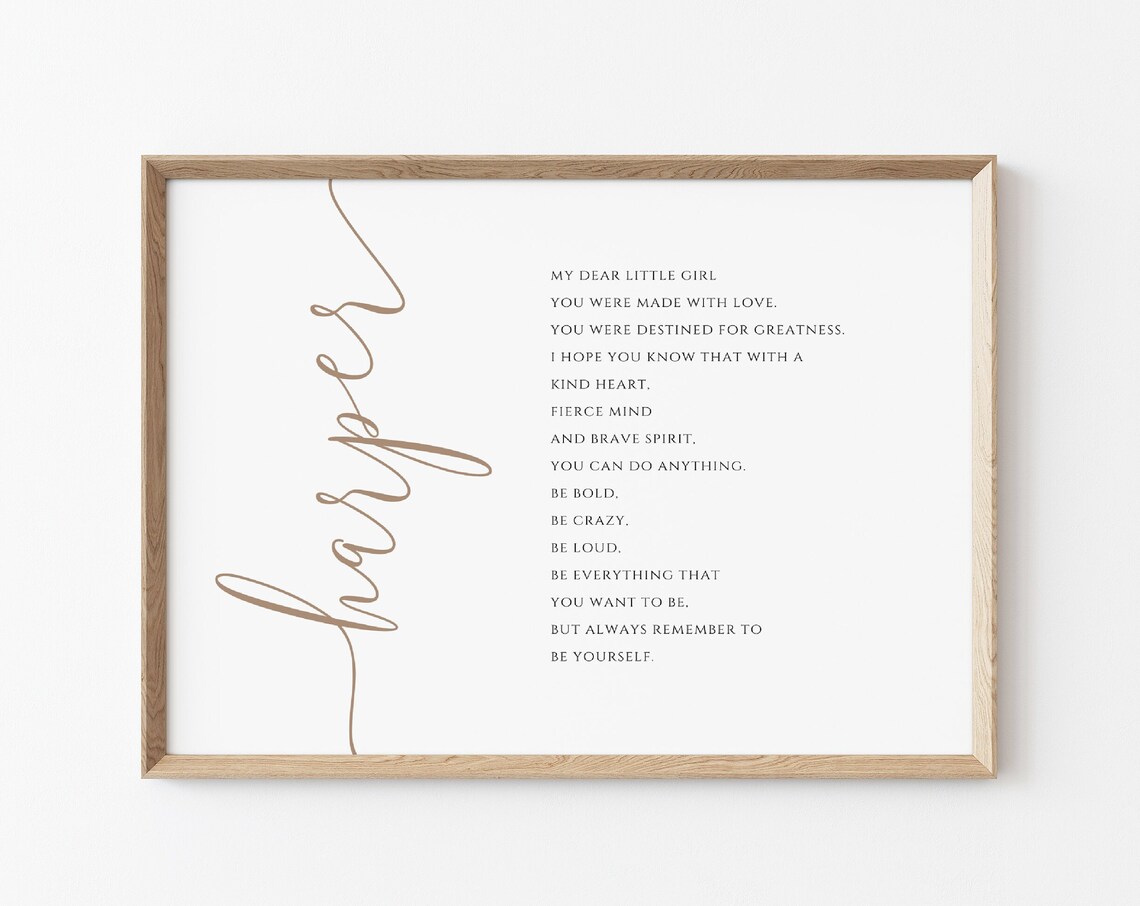 harper
MY DEAR LITTLE GIRL
YOU WERE MADE WITH LOVE.
YOU WERE DESTINED FOR GREATNESS.
I HOPE YOU KNOW THAT WITH A
KIND HEART,
FIERCE MIND
AND BRAVE SPIRIT,
YOU CAN DO ANYTHING.
BE BOLD,
BE CRAZY,
BE LOUD,
BE EVERYTHING THAT
YOU WANT TO BE,
BUT ALWAYS REMEMBER TO
BE YOURSELF.